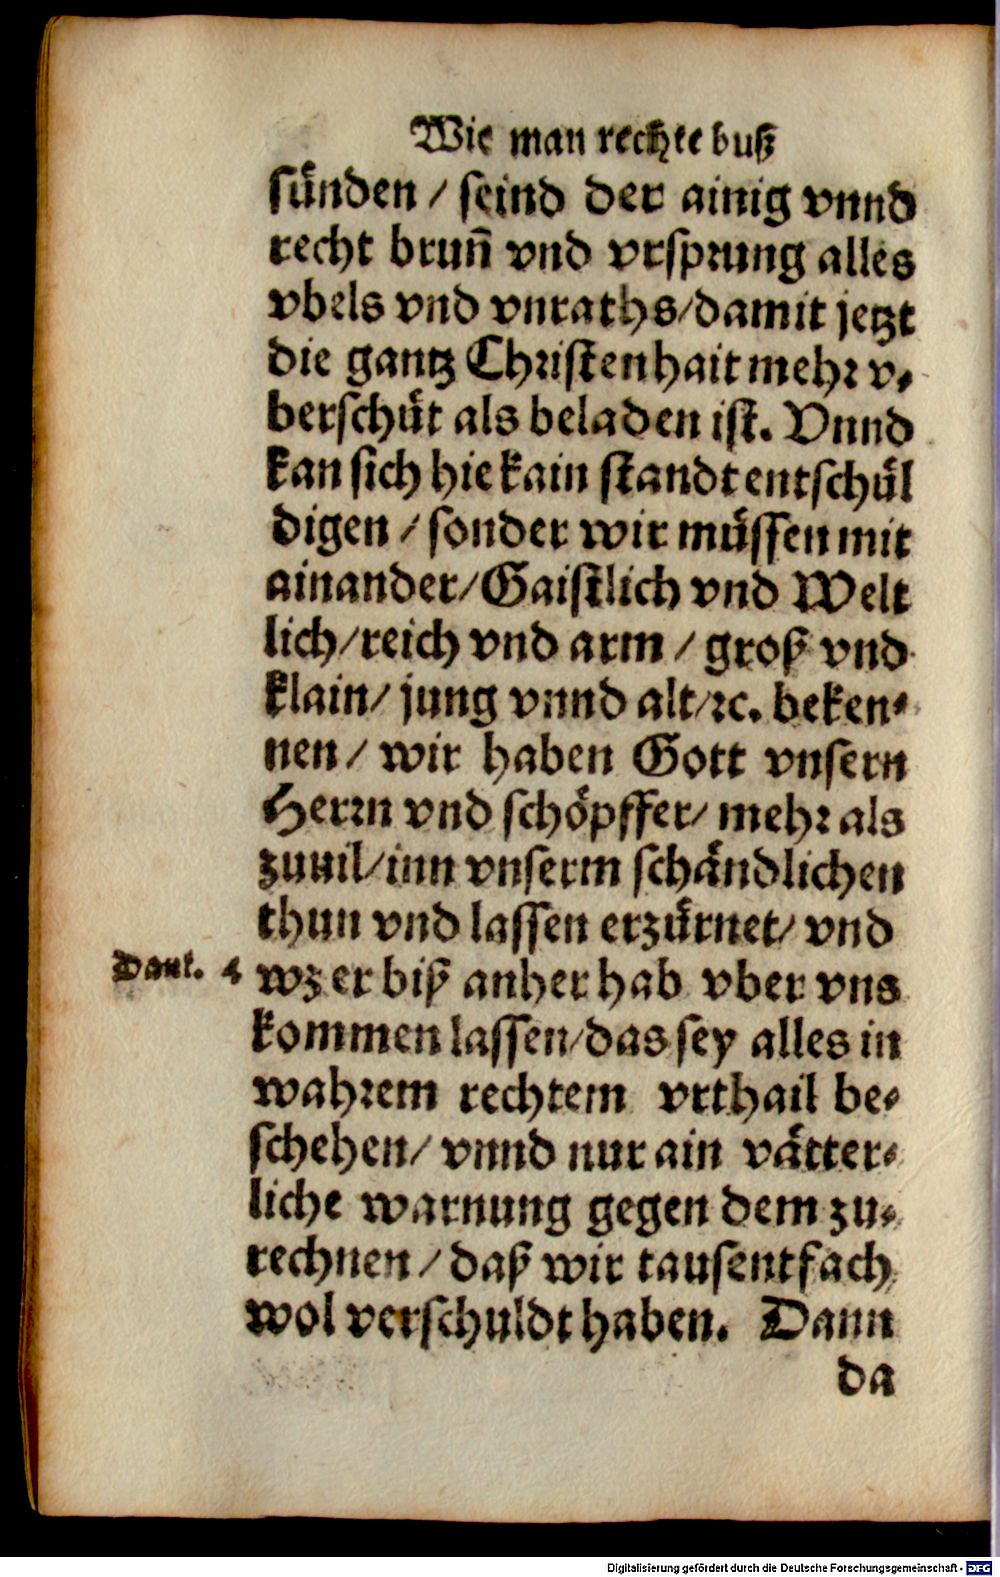 Wie man rechte buß
sünden / seind der ainig vnnd
recht brun̄ vnd vrsprung alles
vbels vnd vnraths/damit jetzt
die gantz Christenhait mehr v⸗
berschüt als beladen ist. Vnnd
kan sich hie kain standt entschül
digen / sonder wir müssen mit
ainander/Gaistlich vnd Welt
lich/reich vnd arm / groß vnd
klain/ jung vnnd alt/ꝛc. beken⸗
nen / wir haben Gott vnsern
Herrn vnd schöpffer/ mehr als
zuuil/inn vnserm schändlichen
thun vnd lassen erzürnet/ vnd
Dani. 4 wz er biß anher hab vber vns
kommen lassen/das sey alles in
wahrem rechtem vrthail be⸗
schehen/ vnnd nur ain vätter⸗
liche warnung gegen dem zu⸗
rechnen / daß wir tausentfach
wol verschuldt haben. Dann
da
Digitalisierung gefördert durch die Deutsche Forschungsgemeinschaft - DFG